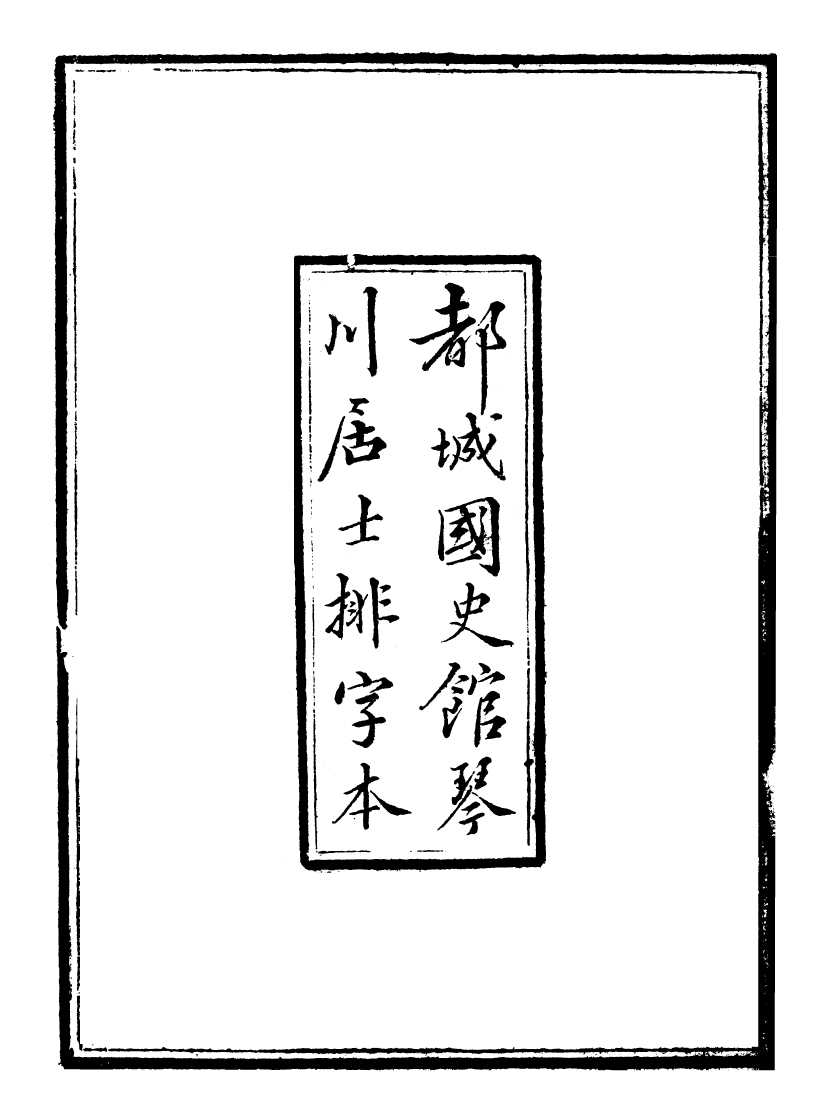 都城國史館琴
川居士排字本